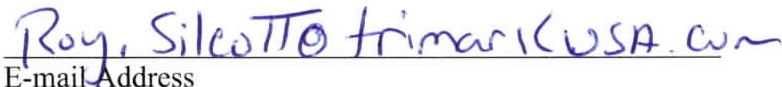 Roy.SilcoTT@trimarkUSA.com
E-mail Address